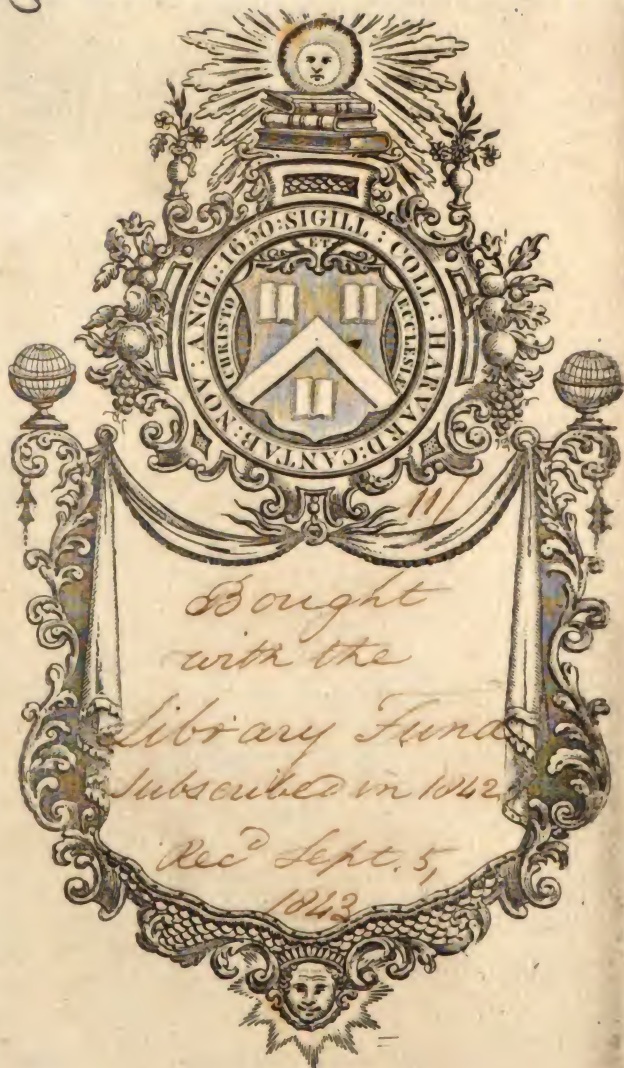 SIGILL : COLL : HARVARD : CANTAB : NOV : ANGL : 1650 :
CHRISTO ET ECCLESIÆ
111
Bought
with the
Library Fund
Subscribed in 1842
Rec^d Sept. 5,
1843